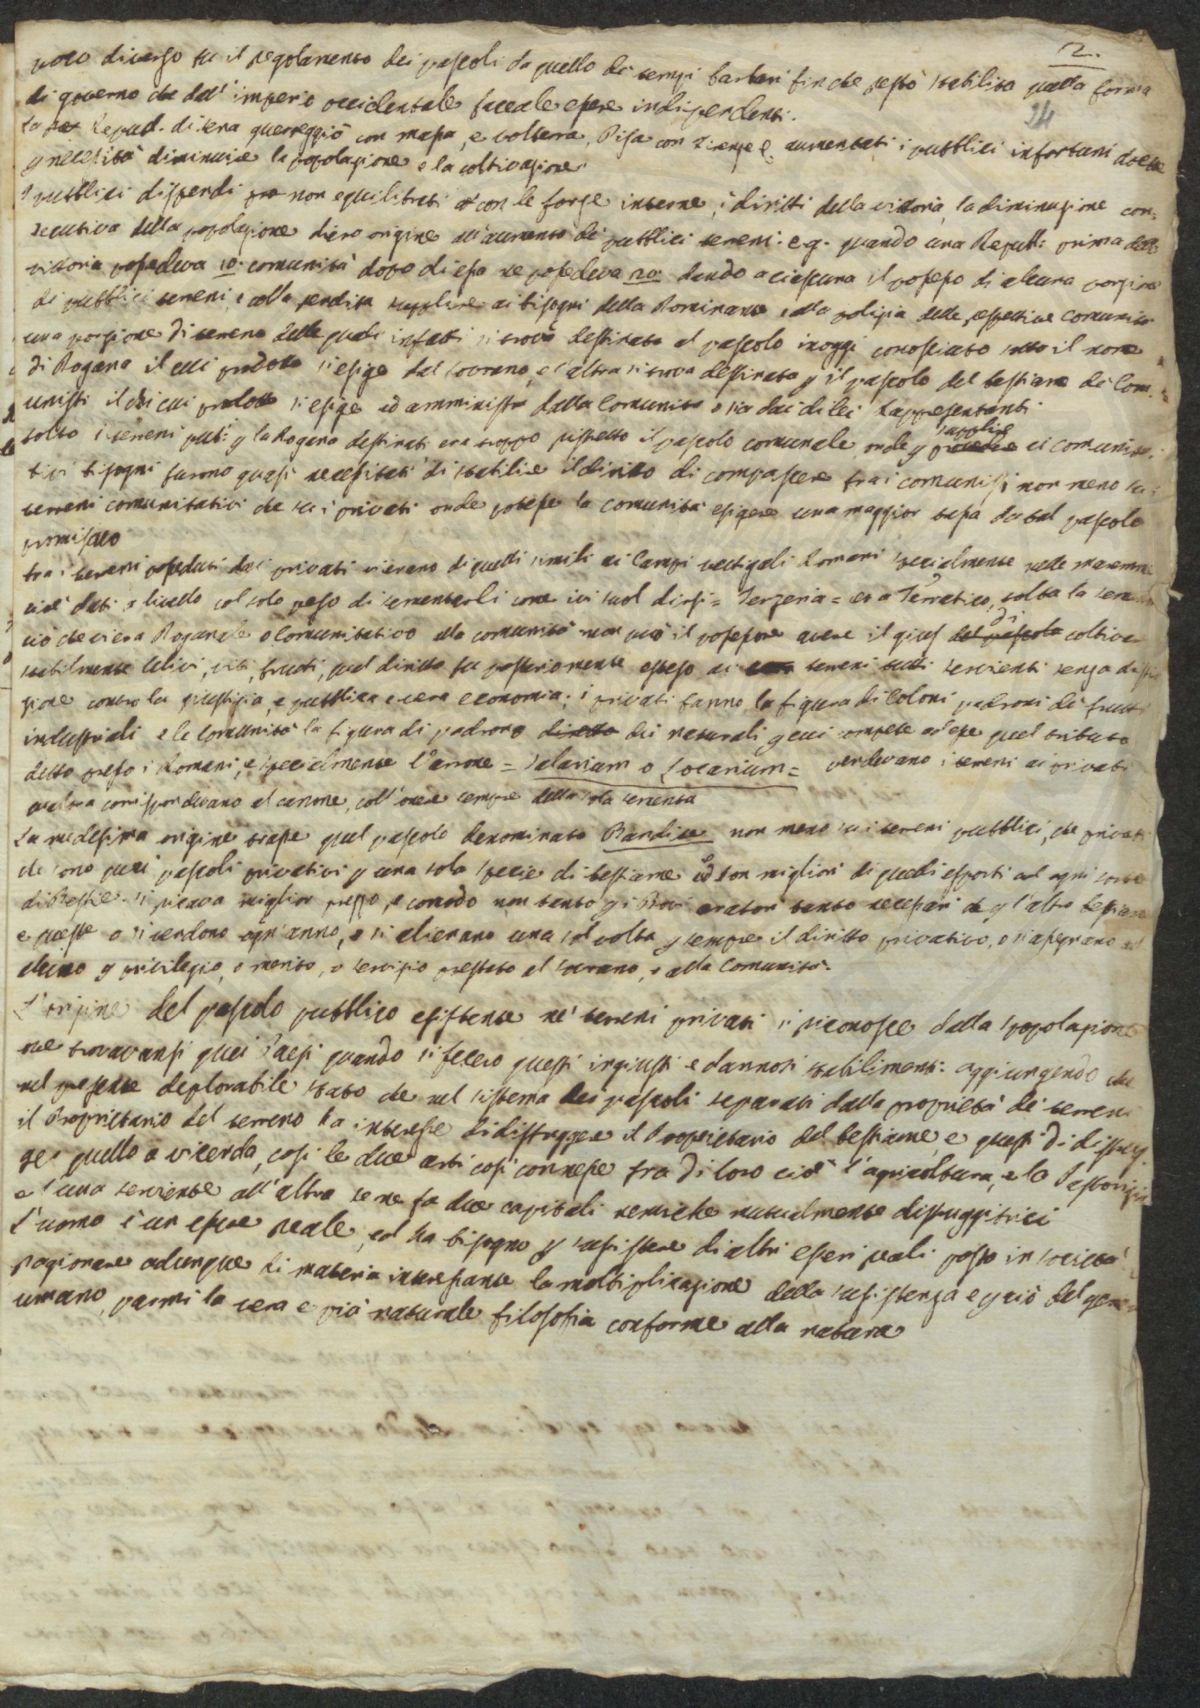 2.
24
poco diverso fu il regolamento dei pascoli da quello de tempi barbari finche restò stabilita quella forma
di governo che dall' imperio occidentale faceale essere indipendenti.
la Repub. di siena guerreggiò con massa, e volterra, Pisa con Firenze e aumentati i pubblici infortuni dovette
p necessità diminuire la popolazione e la coltivazione
I pubblici dispendi non equilibrati con le forze interne, i diritti della vittoria, la diminuzione con=
secutiva della popolazione diero origine all'aumento de pubblici terreni. e.g. quando una Repub: prima della
vittoria possedeva 10. comunità dopo di essa ne possedeva 20. dando a ciascuna il possesso di alcuna porzione
di pubblici terreni e colla rendita supplire ai bisogni della Dominante e alla polizia delle respettive Comunità
una porzione di terreno delle quali infatti si trova destinata al pascolo in oggi conosciuto sotto il nome
di Dogana il cui prodotto si esige dal sovrano, e l'altra si trova destinata p il pascolo del bestiame de Com=
unisti il di cui prodotto si esige ed amministra dalla Comunità o sia dai di lei Rappresentanti
tolto i terreni pub: p la Dogana destinati era troppo ristretto il pascolo comunale onde p supplire ai comunita=
tivi bisogni furono quasi necessitati di stabilire il diritto di compascere tra i comunisti non meno su i
terreni comunitativi che su i privati onde potesse la comunità esigere una maggior tassa da tal pascolo
promiscuo
tra i terreni posseduti dai privati vi erano di quelli simili ai Campi vectigali Romani specialmente nelle maremme
cioè dati a livello col solo peso di sementarli come ivi suol dirsi = Terzeria = o a Terratico, tolta la sementa
ciò che vi era Doganale o Comunitativo alla comunità non può il possessore avere il gius di coltivare
stabilmente Ulivi, viti, frutti, qual diritto fu posteriormente esteso ai terreni tutti servienti senza distin
zione contro la giustizia, e pubblica e vera economia; i privati fanno la figura di Coloni padroni de frutti
industriali e le Comunità la figura di padrone dei naturali p cui compete ad esse quel tributo
detto presso i Romani, e specialmente l'annone = Salarium o Locarium = vendevano i terreni ai privati
qual ora corrispondevano al canone, coll'onere sempre della sola sementa
La medesima origine trasse quel pascolo denominato Bandite non meno su i terreni pubblici, che privati
che sono quei pascoli privativi p una sola specie di bestiame ed son migliori di quelli esposti ad ogni sorte
di Bestie. si ricava miglior prezzo, e comodo non tanto p i Bovi aratori tanto necessari che p l'altro bestiame
e queste o si vendono ogn'anno, o si alienano una sol volta p sempre il diritto privativo, o si assegnano ad
alcuno p privilegio, o merito, o servizio prestato al sovrano, o alla Comunità.
L'origine del pascolo pubblico esistente ne' terreni privati si riconosce dalla spopolazione
ove trovavansi quei Paesi quando si fecero questi ingiusti e dannosi stabilimenti: aggiungendo che
nel presente deplorabile stato che nel sistema dei pascoli separati dalla proprietà de' terreni
il Proprietario del terreno ha interesse di distruggere il Proprietario del bestiame, e questi di distrug=
ger quello a vicenda, così le due arti così connesse tra di loro cioè l'agricoltura, e la Pastorizia
e l'una serviente all'altra se ne fa due capitali nemiche mutualmente distruggitrici
L'uomo è un essere reale, ed ha bisogno p sussistere di altri esseri reali posto in società
Ragionare adunque di materia interessante la moltiplicazione della sussistenza e p ciò del genere
umano, parmi la vera e più naturale filosofia conforme alla natura